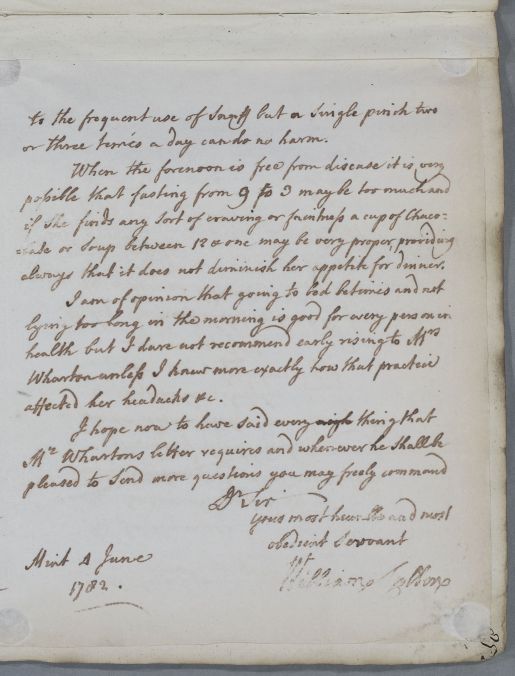 to the frequent use of Snuff but a single pinch two
or three times a day can do no harm.
When the forenoon is free from disease it is very
possible that fasting from 9 to 3 may be too much and
if she finds any sort of craving or faintness a cup of Choco-
-late or Soup between 12 & one may be very proper, providing
always that it does not diminish her appetite for dinner.
I am of opinion that going to bed betimes and not
lying too long in the morning is good for every person in
health but I dare not recommend early rising to Mrs
Wharton unless I knew more exactly how that practice
affected her headachs &c.
I hope now to have said every thing that
Mr Whartons letter requires and whenever he shall be
pleased to Send more questions you may freely command
Dr Sir
your most humble and most
obedient Servant
William
Mint 4 June
1782.